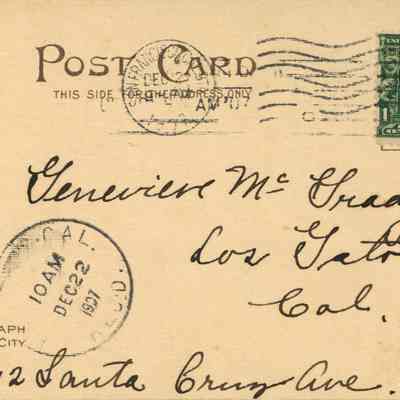 POST CARD
THIS SIDE FOR THE ADDRESS ONLY
SAN FRANCISCO
DEC 2
AM '07
1
Genevieve Mc Grad
Los Gato
Cal.
CAL.
10 AM
DEC 22
1907
REC'D.
APH
CITY
2 Santa Cruz Ave.